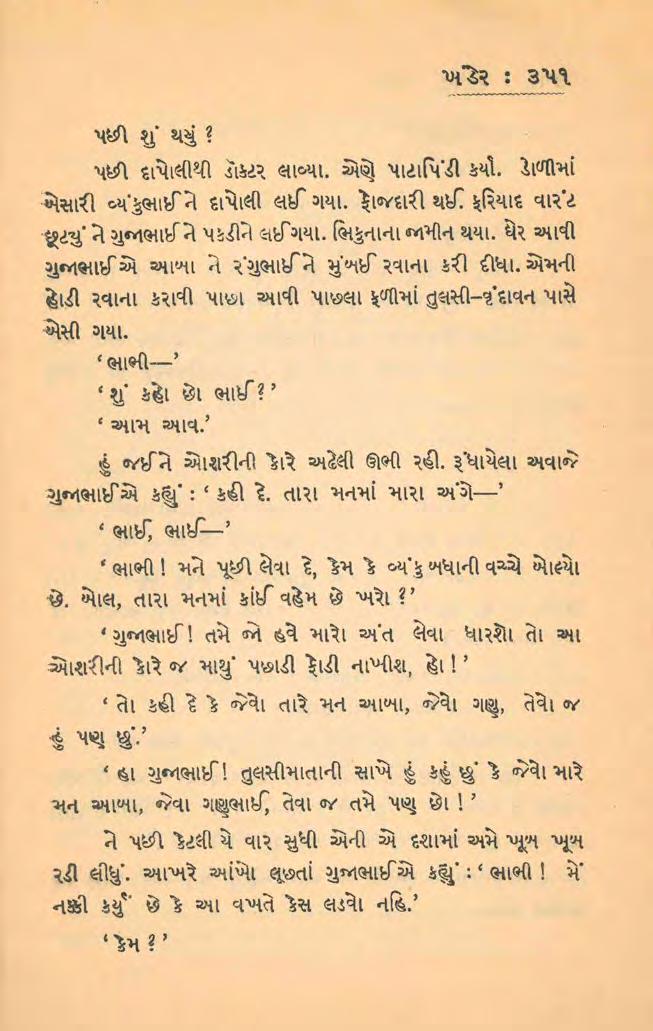 ખંડેર : ૩૫૧
પછી શું થયું ?
પછી દાપોલીથી ડૉક્ટર લાવ્યા. એણે પાટાપિંડી કર્યાં. ડોળીમાં
બેસારી વ્યંકુભાઈને દાપોલી લઈ ગયા. ફોજદારી થઈ. ફરિયાદ વારંટ
છૂટ્યું ને ગુજાભાઈને પકડીને લઈ ગયા. ભિકુનાના જામીન થયા. ઘેર આવી
ગુજાભાઈએ આબા ને રંગુભાઈને મુંબઈ રવાના કરી દીધા. એમની
હોડી રવાના કરાવી પાછા આવી પાછલા ફળીમાં તુલસી–વૃંદાવન પાસે
બેસી ગયા.
‘ ભાભી—’
‘ શું કહો છો ભાઈ ? ’
‘ આમ આવ.’
હું જઈને ઓશરીની કોરે અઢેલી ઊભી રહી. રૂંધાયેલા અવાજે
ગુજાભાઈએ કહ્યું : ‘ કહી દે. તારા મનમાં મારા અંગે—’
‘ ભાઈ, ભાઈ—’
‘ ભાભી ! મને પૂછી લેવા દે, કેમ કે વ્યંકુ બધાની વચ્ચે બોલ્યો
છે. બોલ, તારા મનમાં કાંઈ વહેમ છે ખરો ? ’
‘ ગુજાભાઈ ! તમે જો હવે મારો અંત લેવા ધારશો તો આ
ઓશરીની કોરે જ માથું પછાડી ફોડી નાખીશ, હો ! ’
‘ તો કહી દે કે જેવો તારે મન આબા, જેવો ગણુ, તેવો જ
હું પણ છું.’
‘ હા ગુજાભાઈ ! તુલસીમાતાની સાખે હું કહું છું કે જેવો મારે
મન આબા, જેવા ગણુભાઈ, તેવા જ તમે પણ છો ! ’
ને પછી કેટલી યે વાર સુધી એની એ દશામાં અમે ખૂબ ખૂબ
રડી લીધું. આખરે આંખો લૂછતાં ગુજાભાઈએ કહ્યું : ‘ ભાભી ! મેં
નક્કી કર્યું છે કે આ વખતે કેસ લડવો નહિ.’
‘ કેમ ? ’